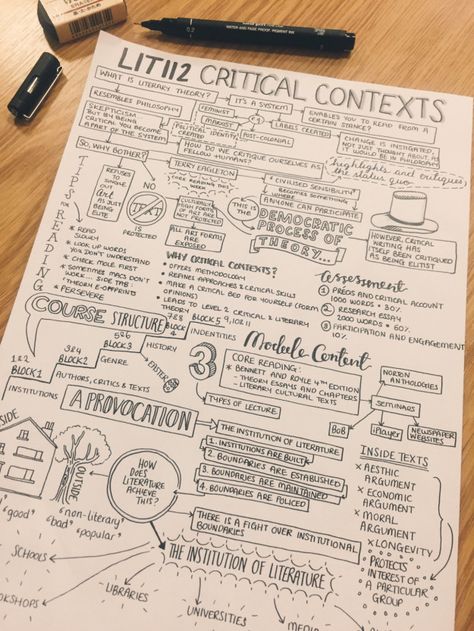 ERASER
0.2
WATER AND FADE PROOF, PIGMENT INK
LIT112 CRITICAL CONTEXTS
WHAT IS LITERARY THEORY?
IT'S A SYSTEM
ENABLES YOU TO READ FROM A
CERTAIN STANCE?
RESEMBLES PHILOSOPHY
FEMINIST
MARXIST
POLITICAL
IDENTITY
POST-COLONIAL
LABELS CREATED
SKEPTICISM
BUT BY BEING
CRITICAL YOU BECOME
A PART OF THE SYSTEM
CHANGE IS INSTIGATED,
NOT JUST THOUGHT ABOUT AS
IT WOULD BE IN PHILOSOPHY
HOW DO WE CRITIQUE OURSELVES AS
FELLOW HUMANS?
highlights and critiques
the status quo
SO, WHY BOTHER?
TERRY EAGLETON
CORE READING THIS
WEEK
"CIVILISED SENSIBILITY"
BECOMES SOMETHING
WHERE
ANYONE CAN PARTICIPATE
REFUSES
TO
SINGLE
OUT
ART
AS JUST
BEING
ELITE
NO
TEXT
IS
PROTECTED
CULTURALLY
HIGH FORMS
OF ART
ARE NOT
PROTECTED
ALL ART FORMS
ARE EXPOSED
THIS IS
THE
DEMOCRATIC
PROCESS OF
THEORY...
HOWEVER, CRITICAL
WRITING HAS
ITSELF BEEN CRITIQUED
AS BEING ELITIST
TIPS FOR READING
* READ
SLOWLY
* LOOK UP WORDS
YOU DON'T UNDERSTAND
* CHECK MOLE FIRST
* SOMETIMES MACS DON'T
WORK... SIDE TAB:
THEORY E-OFFPRINTS
* PERSEVERE
WHY CRITICAL CONTEXTS?
* OFFERS METHODOLOGY
* REFINES APPROACHES & CRITICAL SKILLS
* MAKE A CRITICAL BED FOR YOURSELF (FORM
OPINIONS)
* LEADS TO LEVEL 2 CRITICAL X LITERARY
THEORY
Assessment
1 PRECIS AND CRITICAL ACCOUNT
1000 WORDS = 30%
2 RESEARCH ESSAY
2000 WORDS = 60%
3 PARTICIPATION AND ENGAGEMENT
10%
COURSE STRUCTURE
1&2
BLOCK 1
INSTITUTIONS
3&4
BLOCK2
AUTHORS, CRITICS & TEXTS
5&6
BLOCK3
GENRE
7&8
BLOCK4
HISTORY
EASTER
BLOCK5 9, 10 & 11
INDENTITIES
Module Content
3
CORE READING:
* BENNETT AND ROYLE 4TH EDITION
- THEORY ESSAYS AND CHAPTERS
- LITERARY CULTURAL TEXTS
TYPES OF LECTURE
NORTON
ANTHOLOGIES
SEMINARS
BoB
iPlayer
NEWSPAPER
WEBSITES
A PROVOCATION
THE INSTITUTION OF LITERATURE
1. INSTITUTIONS ARE BUILT
2. BOUNDARIES ARE ESTABLISHED
3. BOUNDARIES ARE MAINTAINED
4. BOUNDARIES ARE POLICED
THERE IS A FIGHT OVER INSTITUTIONAL
BOUNDARIES
INSIDE TEXTS
× AESTHIC
ARGUMENT
× ECONOMIC
ARGUMENT
× MORAL
ARGUMENT
× LONGEVITY
PROTECTS
INTEREST OF
A PARTICULAR
GROUP
OUTSIDE
HOW
DOES
LITERATURE
ACHIEVE
THIS?
"good"
non-literary
"bad"
"popular"
THE INSTITUTION OF LITERATURE
SCHOOLS
LIBRARIES
UNIVERSITIES